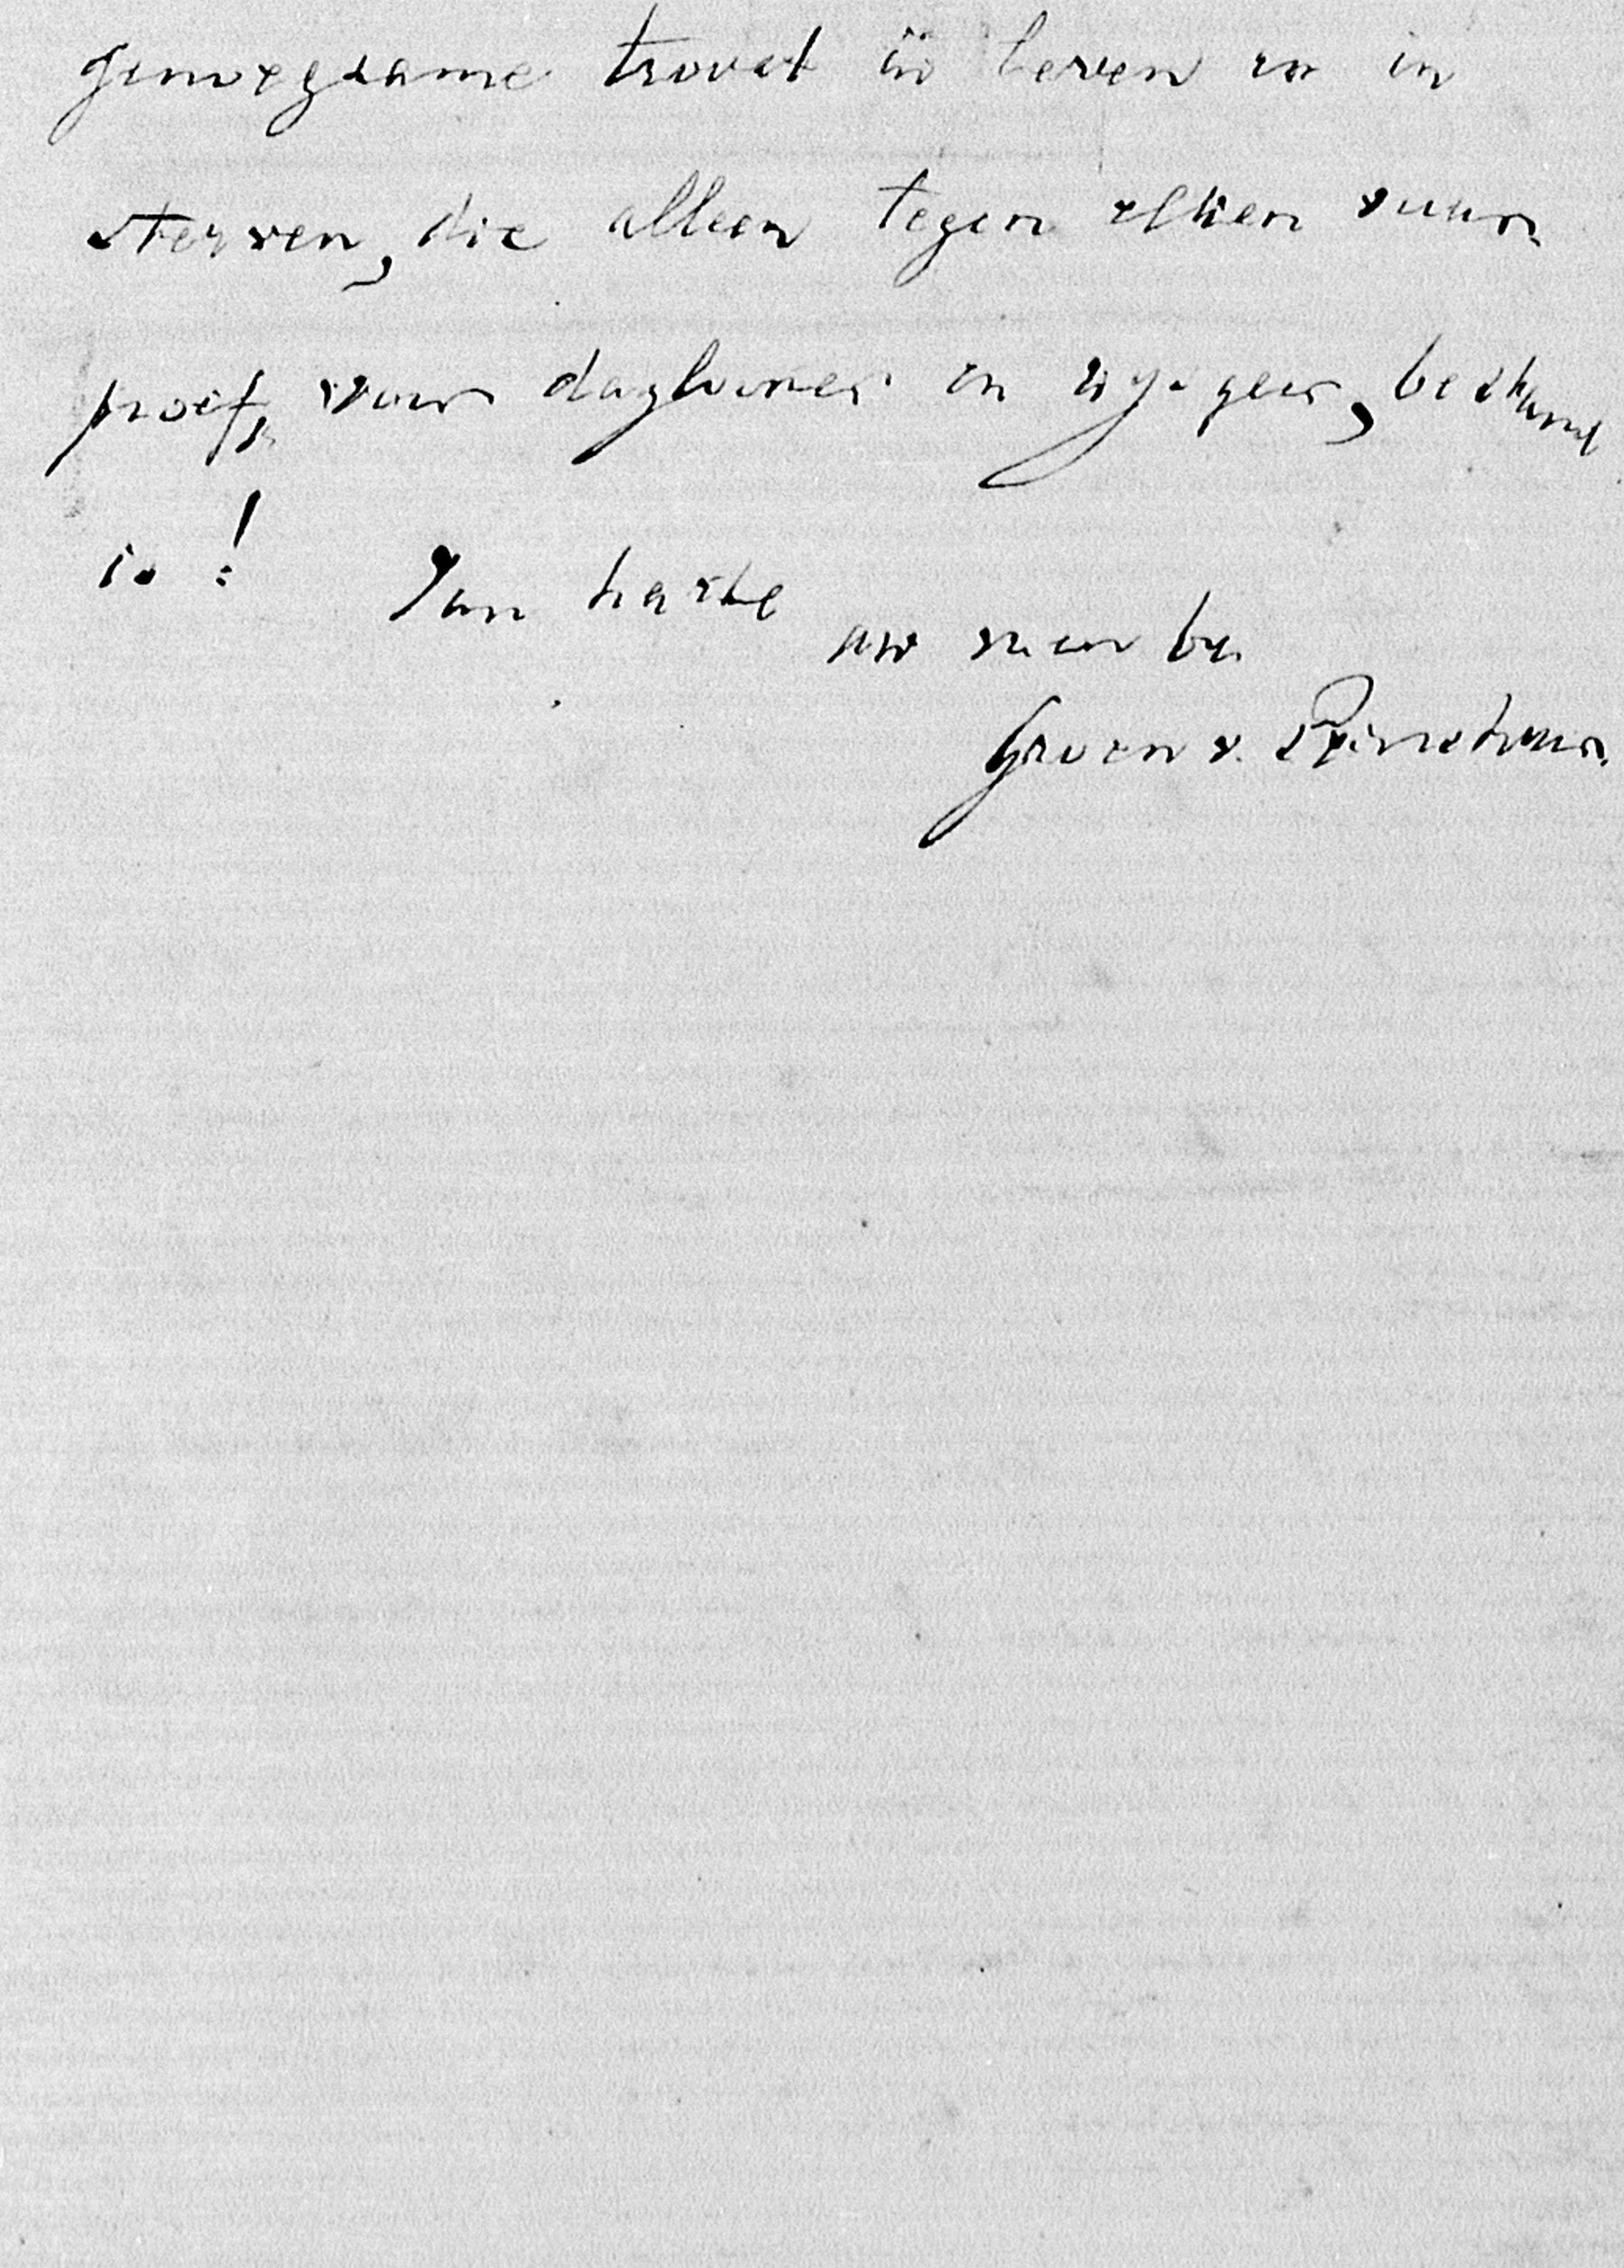 genoegzame troost in leven en in
sterven, die alleen tegen elken vuur-
proef, voor daglooner en wijsgeer, bestand
is! Van harte
uw vriend
Groen v. Prinsterer.